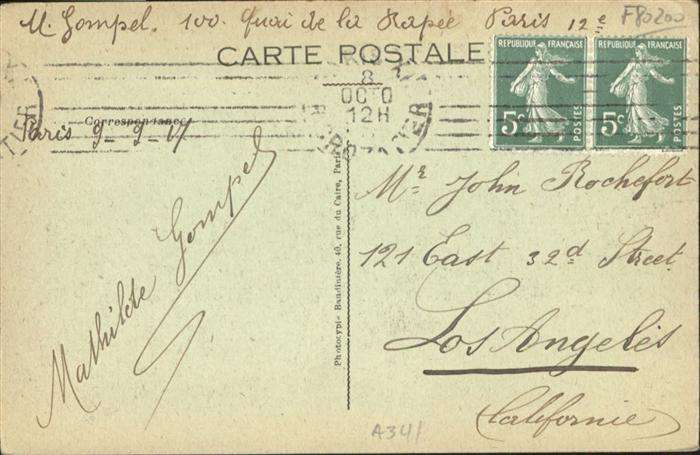 M. Gompel. 100. Quai de la Rapée Paris 12e
F80200
CARTE POSTALE
REPUBLIQUE FRANÇAISE
5c
POSTES
REPUBLIQUE FRANÇAISE
5c
POSTES
8
OCTO
12H
Correspondance
Paris 9-9-17
Mathilde Gompel
Photocypi- Baudinière, 40, rue du Caire, Paris
Mr. John Rochefort
121 East 32d Street
Los Angelès
Californie
A341